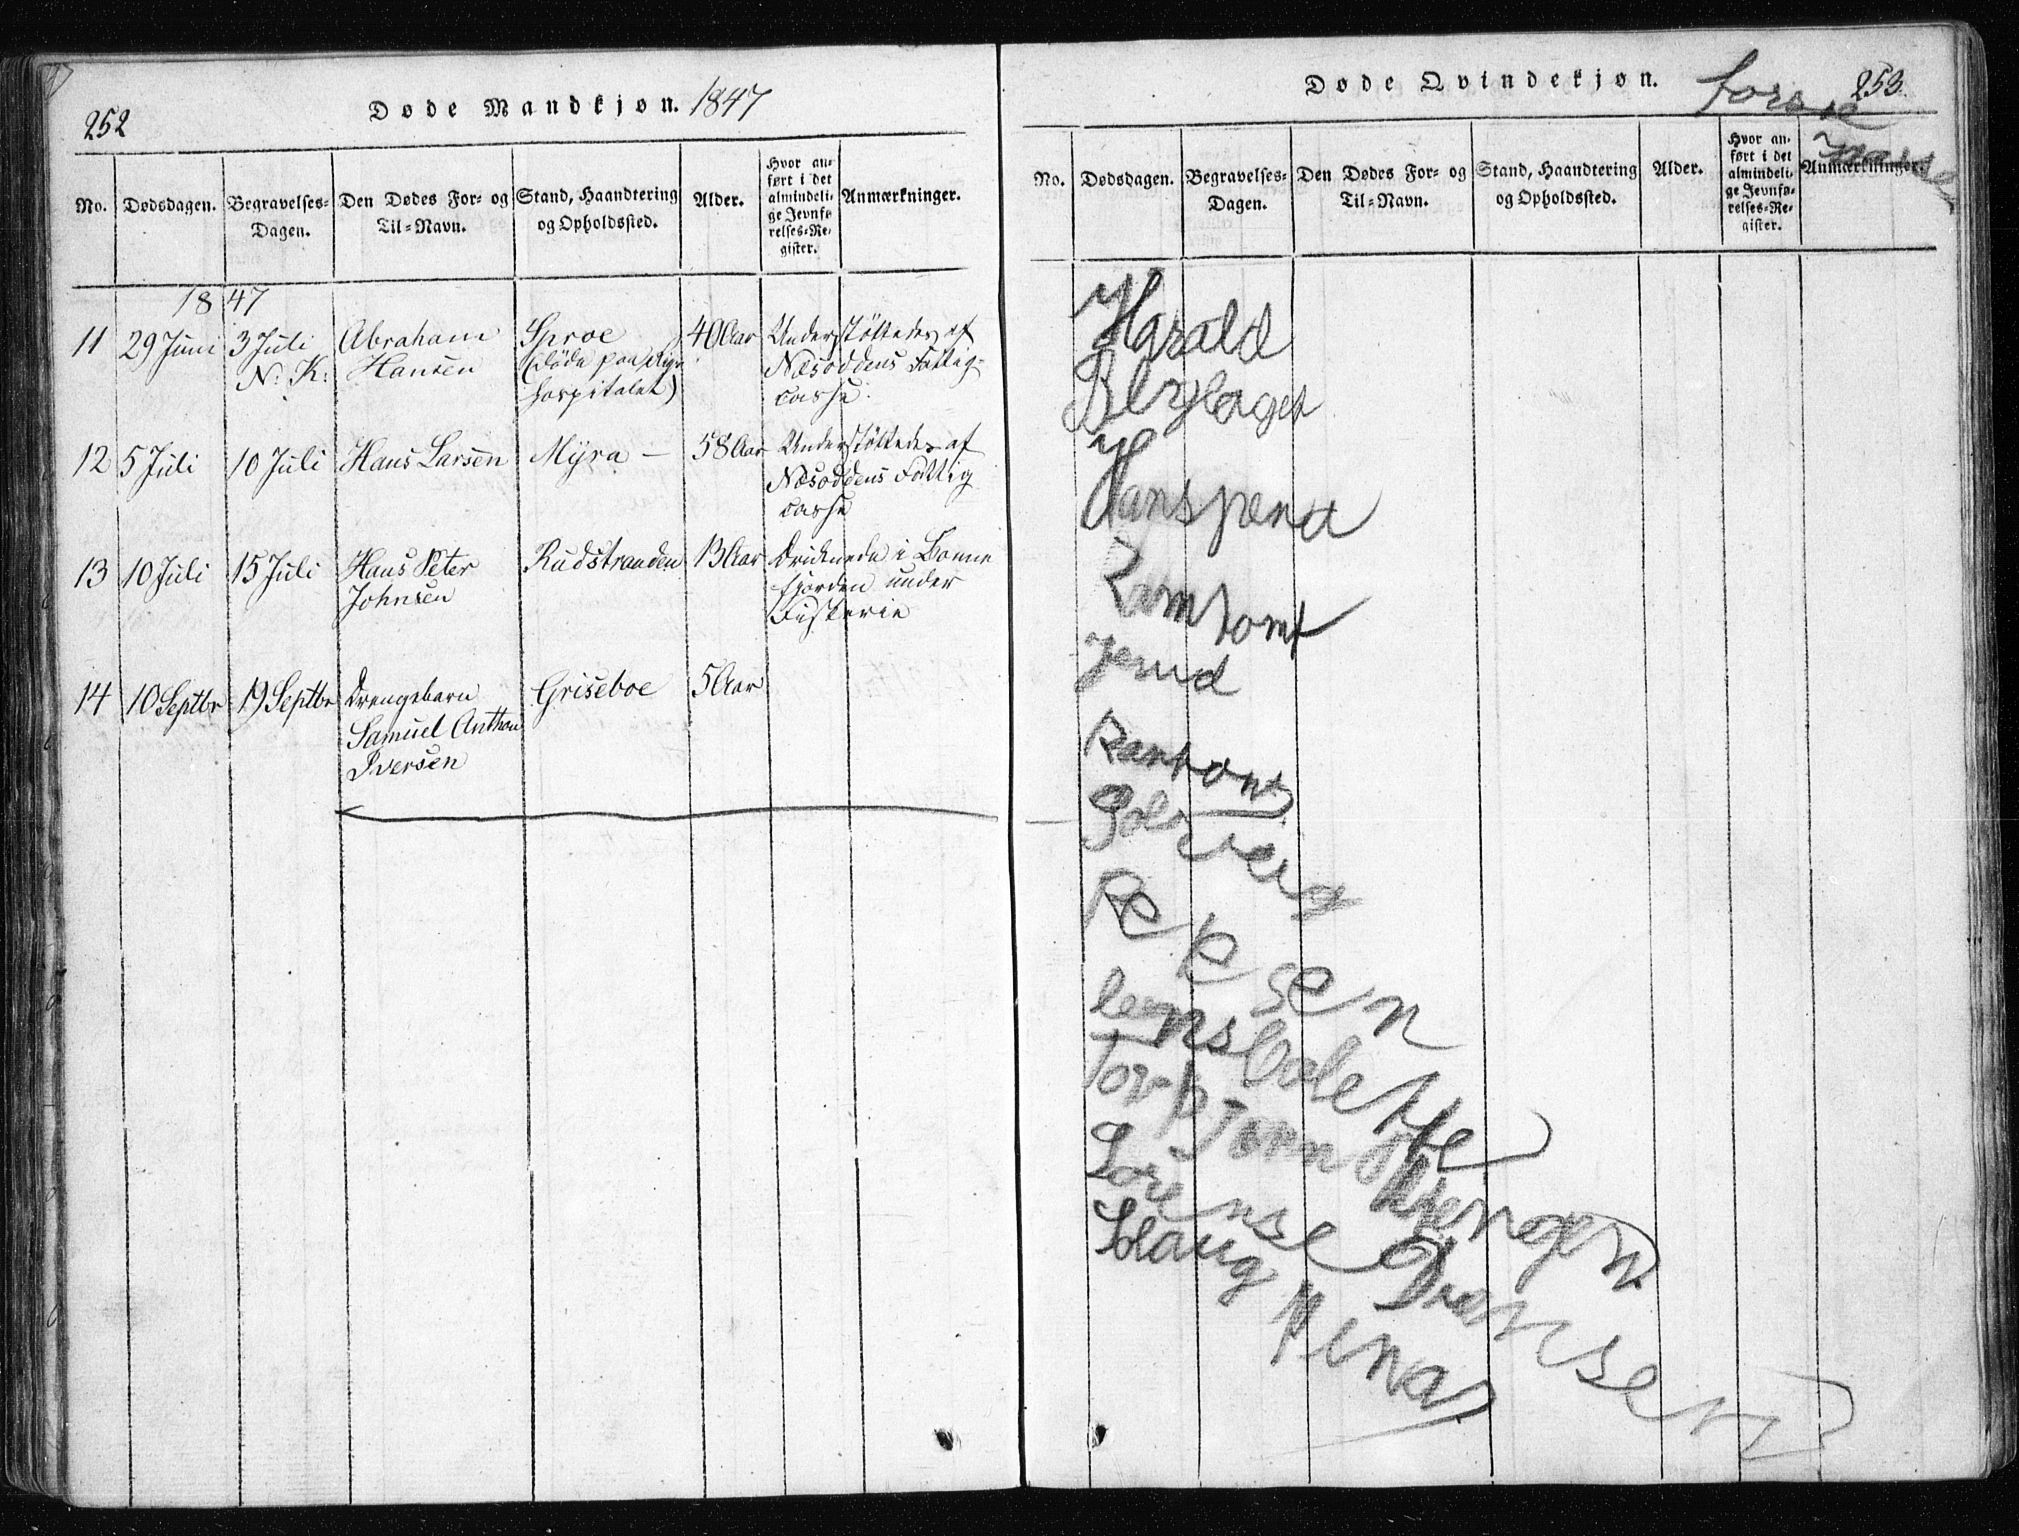 252
Døde Mandkjøn. 1847
No. Dødsdagen. Begravelses-Dagen. Den Dødes For- og Til-Navn. Stand, Haandtering og Opholdssted. Alder. Hvor anført i det almindelige Jevnførelses-Register. Anmærkninger.
1847
11 29 Juni 3 Juli N: K: Abraham Hansen Sproe (døde paa Rigshospitalet) 40 Aar Understøttedes af Næsoddens Fattigcasse.
12 5 Juli 10 Juli Hans Larsen Myra — 58 Aar Understøttedes af Næsoddens Fattigcasse
13 10 Juli 15 Juli Hans Peter Johnsen Rudstranden 13 Aar Druknede i Bonnefjorden under Fiskerie
14 10 Septbr 19 Septbr Drengebarn Samuel Anthon Iversen Griseboe 5 Aar
Døde Qvindekjøn.
253.
No. Dødsdagen. Begravelses-Dagen. Den Dødes For- og Til-Navn. Stand, Haandtering og Opholdssted. Alder. Hvor anført i det almindelige Jevnførelses-Register. Anmærkninger.
Harald
Berhaget
Hanspena
Ramtomt
Jerud
Ramtomt
Solveig
Reksen
Torbjørn
Lorense
Slaug pena